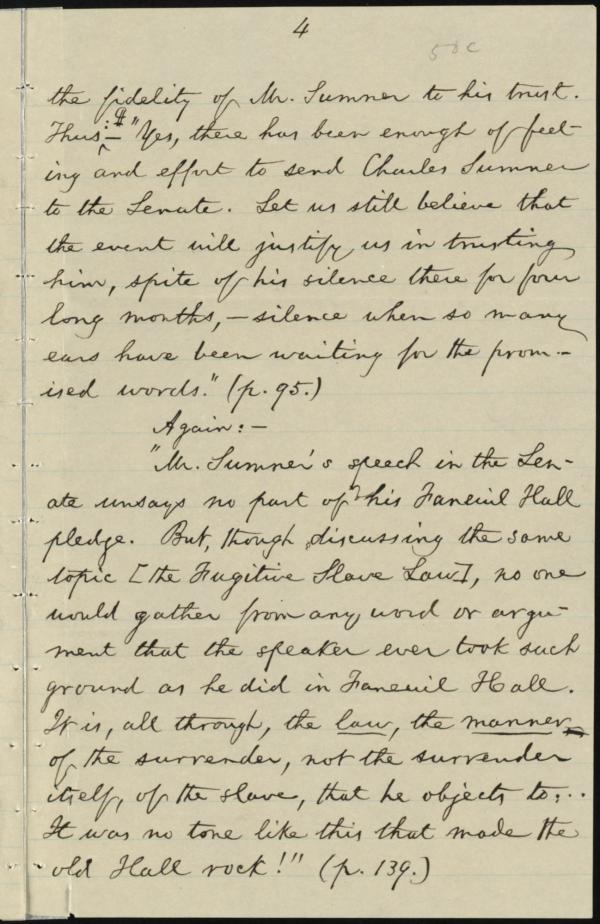 4
58c
the fidelity of Mr. Sumner to his trust.
Thus:— ¶ "Yes, there has been enough of feel-
ing and effort to send Charles Sumner
to the Senate. Let us still believe that
the event will justify us in trusting
him, spite of his silence there for four
long months,—silence when so many
ears have been waiting for the prom-
ised words." (p. 95.)
Again:—
"Mr. Sumner's speech in the Sen-
ate unsays no part of his Faneuil Hall
pledge. But, though discussing the same
topic [the Fugitive Slave Law], no one
would gather from any word or argu-
ment that the speaker ever took such
ground as he did in Faneuil Hall.
It is, all through, the law, the manner
of the surrender, not the surrender
itself, of the slave, that he objects to...
It was no tone like this that made the
old Hall rock!" (p. 139.)